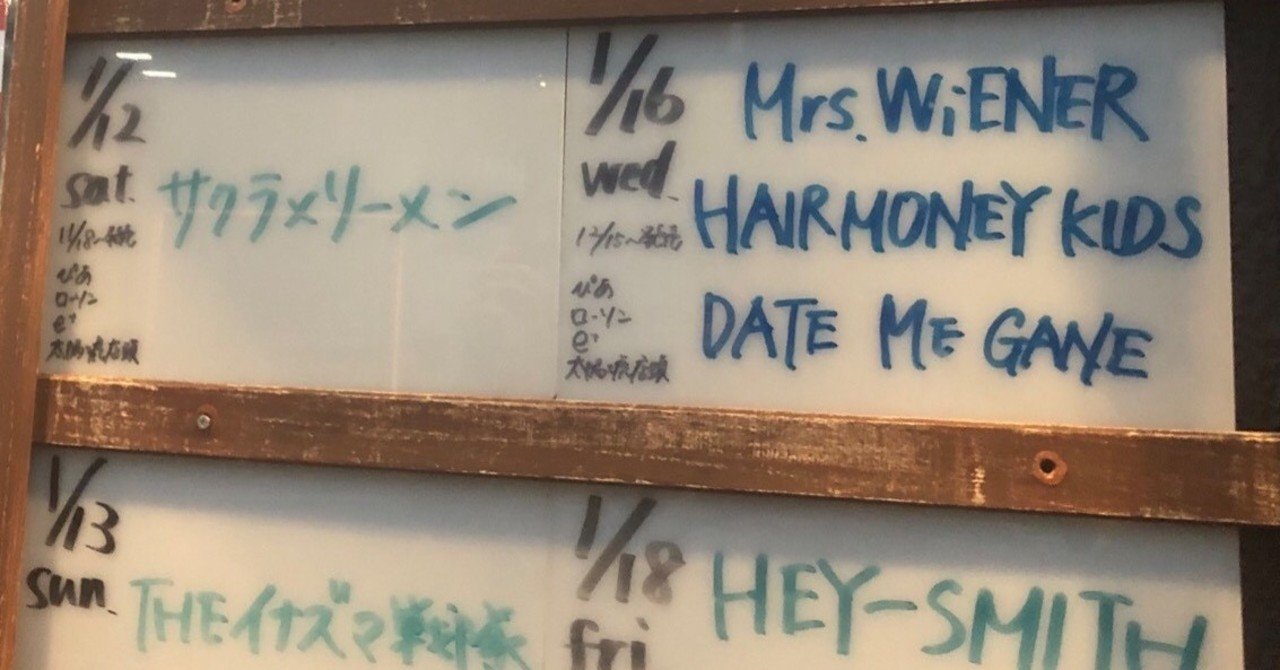 1/12
sat.
11/18~発売
ぴあ
ローソン
e+
サクラメリーメン
1/16
wed.
12/15~発売
ぴあ
ローソン
e+
Mrs. WiENER
HAIRMONEY KIDS
DATE ME GANE
1/13
sun.
THEイナズマ戦隊
1/18
fri
HEY-SMITH